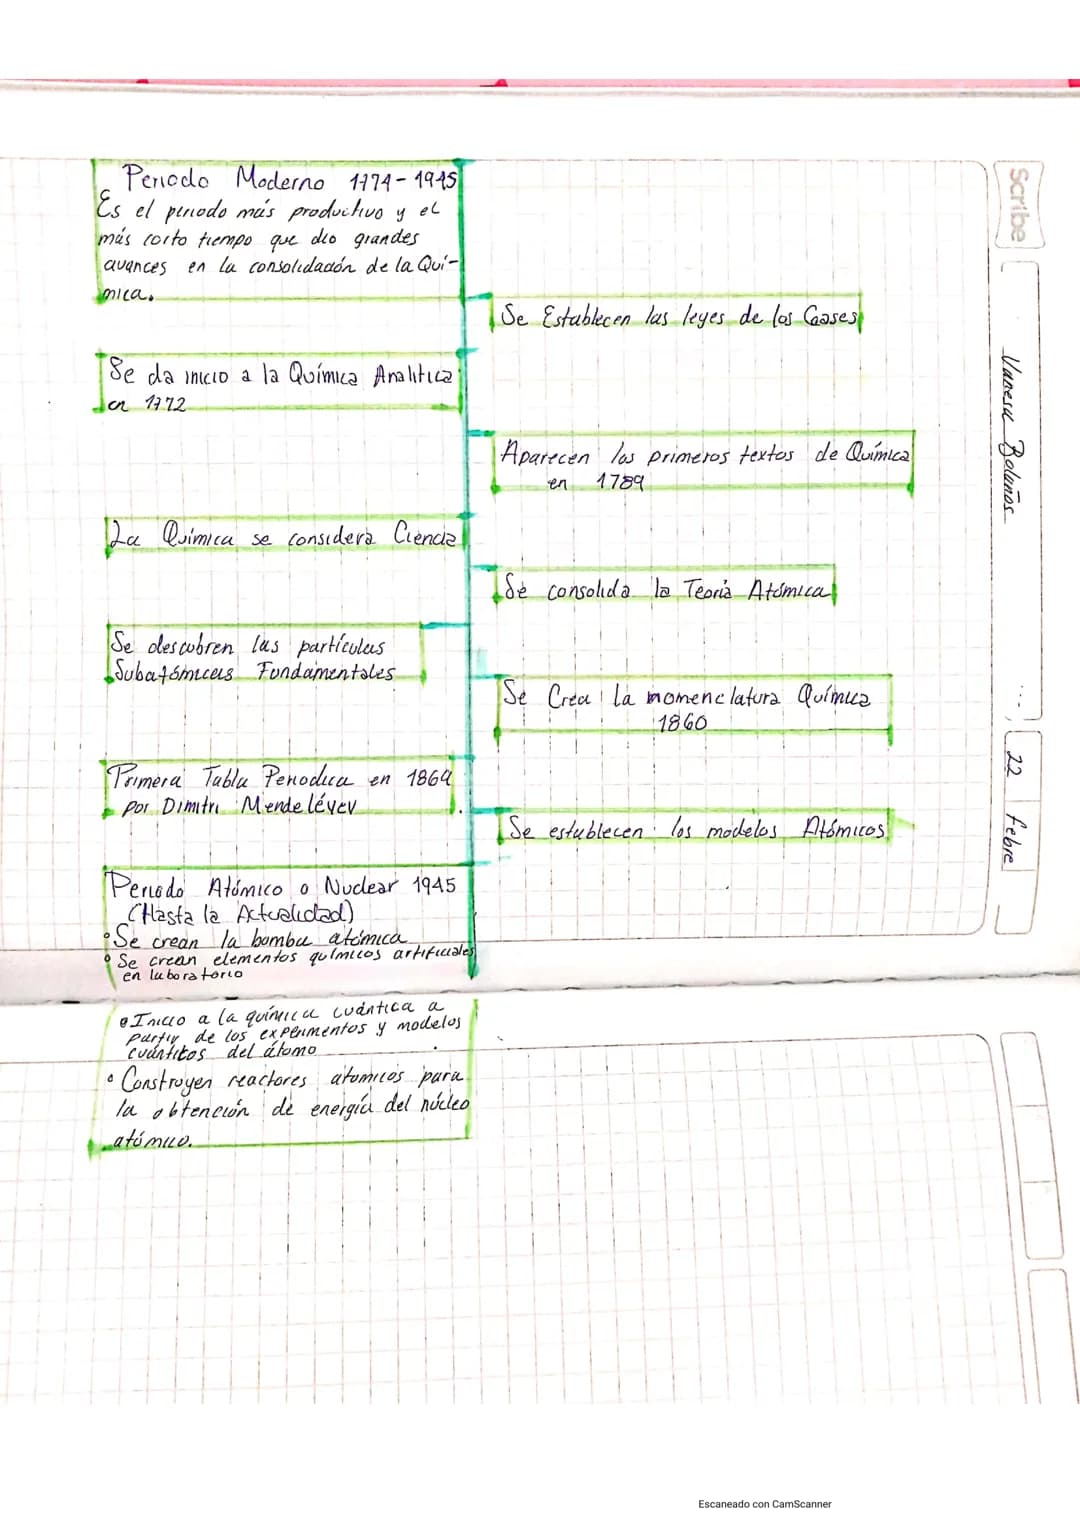 Periodo Moderno 1774-1945
Es el periodo más productivo y el
más corto tiempo que dio grandes
avances en la consolidación de la Quí-
mica.
Se Establecen las leyes de los Gases
Se da inicio a la Química Analítica
en 1772
Aparecen los primeros textos de Química
en 1789
La Química se considera Ciencia
Se consolida la Teoría Atómica
Se descubren las partículas
Subatómicas Fundamentales
Se Crea la nomenclatura Química
1860
Primera Tabla Periodica en 1869
por Dimitri Mendeléyev
Se establecen los modelos Atómicos
Periodo Atómico o Nuclear 1945
(Hasta la Actualidad)
• Se crean la bomba atómica
• Se crean elementos químicos artificiales
en laboratorio
• Inicio a la química cuántica a
partir de los experimentos y modelos
cuánticos del átomo
• Construyen reactores atomicos para
la obtención de energía del núcleo
atómico.
Scribe
Vanesa Bolaños
22 febre
Escaneado con CamScanner